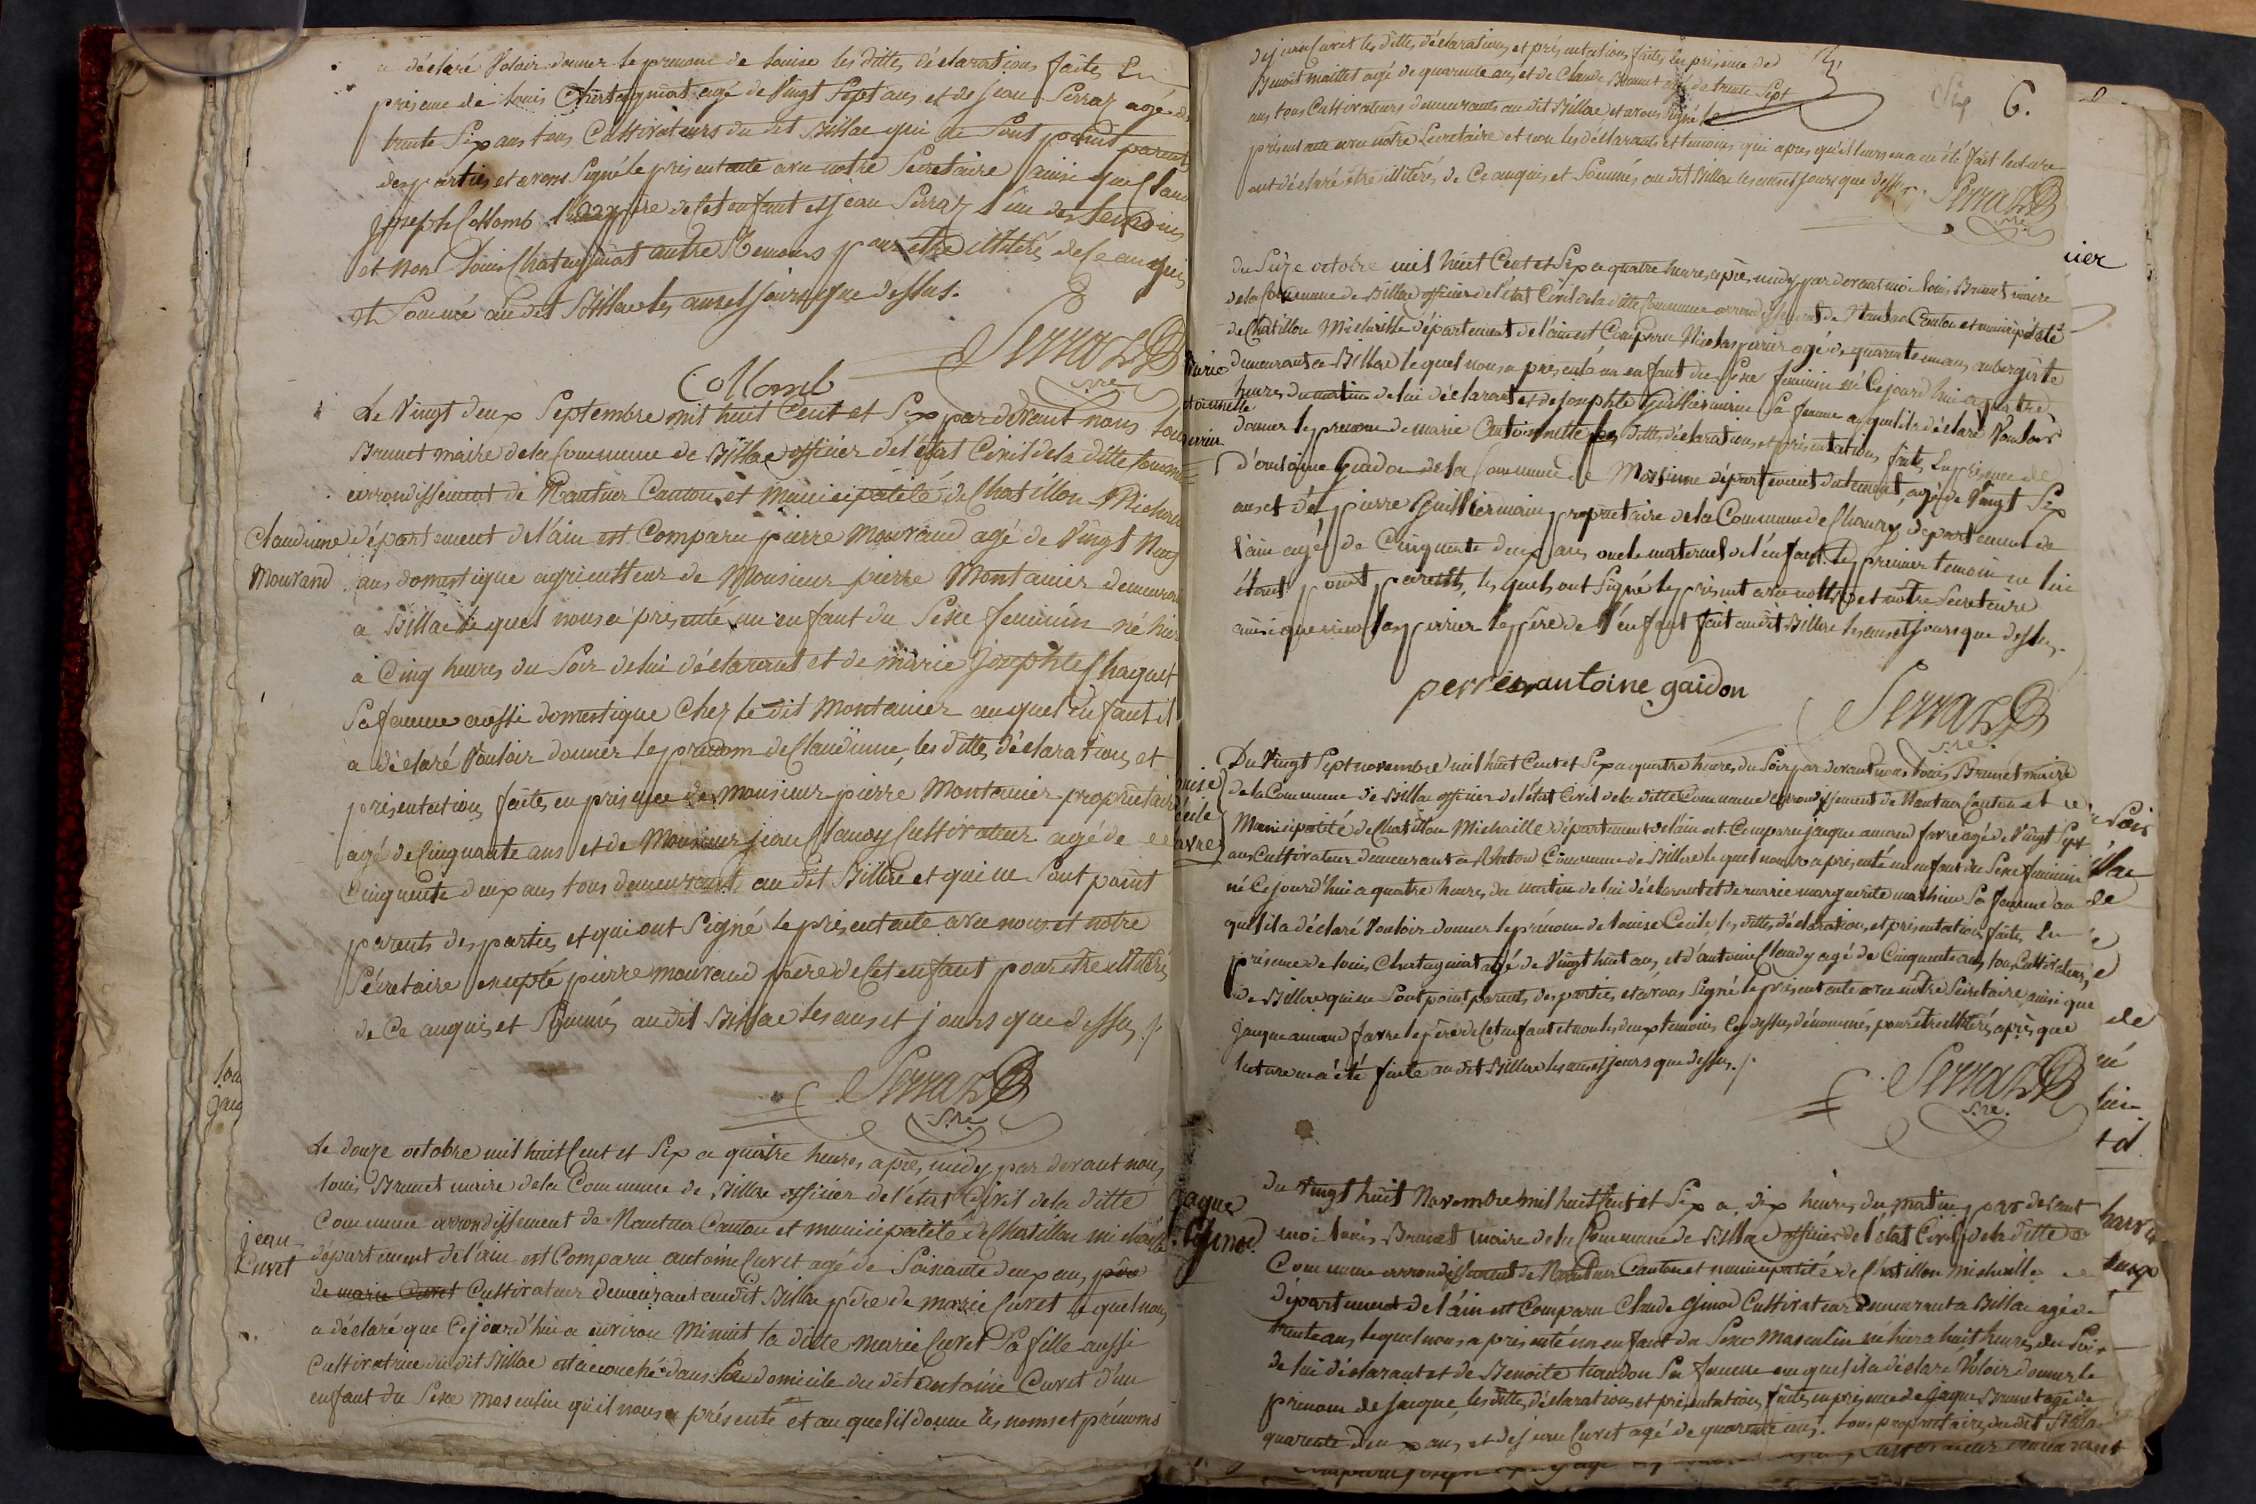 a déclaré voloir donner le prenom de Louise les dittes déclarations faites En
présence de louis Chatagniat agé de Vingt Sept ans et de jean Serraz agé de
trente Six ans tous Cultivateurs du dit Billiac qui ne Sont point parents
des parties et avons Signé le présent acte avec notre Secretaire ainsi que Claude
joseph Collomb père de Cet enfant et jean Serraz l'un des temoins
et non Louis Chatagniat autre Temoins pour etre illitéré de Ce anquis
et Sommé audit Billiac les ans et jours que dessus.
Serraz B
Sre
Collomb
Le Vingt deux Septembre mil huit Cent et Six par devant nous Louis
Brunet maire de la Commune de Billiac officier de l'état Civil de la ditte Commune
arrondissement de Nantua Canton et Municipalité de Chatillon Michaille
Claudinne
Mouraud
département de l'ain est Comparu pierre Mouraud agé de Vingt Neuf
ans domestique agriculteur de Monsieur pierre Montanier demeurant
a Billiac le quel nous a présenté un enfant du Sexe feminin né hier
a Cinq heures du Soir de lui déclarant et de marie josephte Chaquet
Sa femme aussi domestique Chez le dit Montanier auquel Enfant il
a déclaré Vouloir donner le prenom de Claudinne, les dittes déclarations et
présentations faites en présence de Monsieur pierre Montanier propriétaire
agé de Cinquante ans et de Monsieur jean Clanoy Cultivateur agé de
Cinquante deux ans tous demeurant au dit Billiac et qui ne Sont point
parents des parties et qui ont Signé le présent acte avec nous et notre
Sécretaire excepté pierre mouraud père de Cet enfant pour etre illitéré
de Ce anquis et Sommés audit Billiac les ans et jours que dessus ./.
Serraz B
Sre
Le douze octobre mil huit Cent et Six a quatre heures après midy par devant nous
louis Brunet maire de la Commune de Billiac officier de l'état Civil de la ditte
Commune arrondissement de Nantua Canton et municipalité de Chatillon michaille
jean
Curet
département de l'ain est Comparu antoine Curet agé de Soixante deux ans père
de marie Curet Cultivateur demeurant audit Billiac père de marie Curet le quel nous
a déclaré que Cejourd'hui a environ Minuit la ditte Marie Curet Sa fille aussi
Cultivatrice du dit Billiac est acouché dans le domicile du dit antoine Curet d'un
enfant du Sexe masculin qu'il nous a présenté et au quel il donne les noms et prénoms
6.
de jean Curet les dittes déclarations et présentations faites En présence de
Benoit maillet agé de quarante ans et de Claude Brunet agé de trente Sept
ans tous Cultivateurs demeurants au dit Billiac et avons Signé le
présent acte avec notre Secretaire et non les déclarants et temoins qui apres qu'il leurs en a été fait lecture
ont déclaré etre illitérés de Ce anquis et Sommés au dit Billiac les ans et jours que dessus.
Serraz B
Sre
du Seize octobre mil huit Cent et Six a quatre heures après midy par devant moi louis Brunet maire
de la Commune de Billiac officier de l'état Civil de la ditte Commune arrondissement de Nantua Canton et municipalité
de Chatillon Michaille département de l'ain est Comparu Nicolas perrier agé de quarante un ans aubergiste
demeurant a Billiac le quel nous a présenté un enfant du Sexe feminin né Ce jourd'hui a quatre
heures du matin de lui déclarant et de josephte Guilliermin Sa femme auquel il a déclaré Vouloir
donner le prenom de marie Antoinette les dittes déclarations et présentations faites En présence de
d'antoine Gaidon de la Commune de département du Leman, agé de Vingt Six
ans et de pierre Guilliermin propriétaire de la Commune de département de
l'ain agé de Cinquante deux ans oncle maternel de l'enfant le premier temoin ne lui
étant point parent, les quels ont Signé le présent avec nous et notre Secretaire
ainsi que nicolas perrier le père de l'enfant fait au dit Billiac les ans et jours que dessus.
perrier antoine gaidon
Serraz B
Sre
Du Vingt Sept novembre mil huit Cent et Six a quatre heures du Soir par devant nous louis Brunet maire
de la Commune de Billiac officier de l'état Civil de la ditte Commune arrondissement de Nantua Canton et
Municipalité de Chatillon Michaille département de l'ain est Comparu jaque amand favre agé de Vingt Sept
ans Cultivateur demeurant a Commune de Billiac le quel nous a présenté un enfant du Sexe feminin
né Ce jourd'hui a quatre heures du matin de lui déclarant et de marie marguerite mathieu Sa femme au
quel il a déclaré Vouloir donner le prénom de louise Cecile les dittes déclarations et présentations faites En
présence de louis Chatagniat agé de Vingt huit ans et d'antoine Claudy agé de Cinquante ans tous Cultivateurs
de Billiac qui ne Sont point parents des parties et avons Signé le présent acte avec notre Secretaire ainsi que
jaque amand favre le père de Cet enfant et non les deux temoins Cy dessus dénommés pour etre illitérés après que
lecture en a été faite au dit Billiac les ans et jours que dessus ./.
Serraz B
Sre.
jaque
Ginod
du Vingt huit Novembre mil huit Cent et Six a dix heures du matin par devant
moi louis Brunet maire de la Commune de Billiac officier de l'état Civil de la ditte
Commune arrondissement de Nantua Canton et municipalité de Chatillon michaille
département de l'ain est Comparu Claude Ginod Cultivateur demeurant a Billiac agé de
trente ans lequel nous a présenté un enfant du Sexe Masculin né hier a huit heures du Soir
de lui déclarant et de Benoite Sa femme au quel il a déclaré Voloir donner le
prenom de Jaque, les dittes déclarations et présentations faites en présence de jaque Brunet agé de
quarante deux ans et de jean Curet agé de quarante ans tous propriétaires du dit Billiac